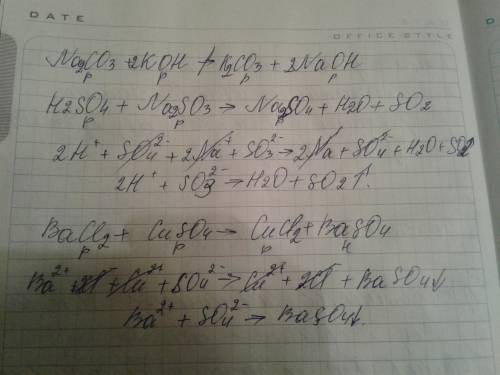 DATE
OFFICE STYLE
Na2CO3 + 2KOH ↛ K2CO3 + 2NaOH
р р р
H2SO4 + Na2SO3 → Na2SO4 + H2O + SO2
р р р
2H⁺ + SO4²⁻ + 2Na⁺ + SO3²⁻ → 2Na + SO4²⁻ + H2O + SO2
2H⁺ + SO3²⁻ → H2O + SO2↑.
BaCl2 + CuSO4 → CuCl2 + BaSO4
р р н
Ba²⁺ + 2Cl⁻ + Cu²⁺ + SO4²⁻ → Cu²⁺ + 2Cl⁻ + BaSO4↓
Ba²⁺ + SO4²⁻ → BaSO4↓.